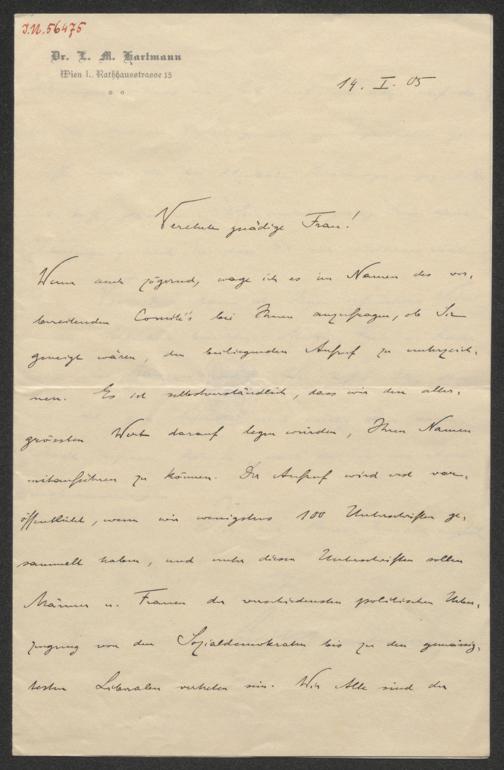 J.N. 56475
Dr. L. M. Hartmann
Wien I., Rathhausstrasse 15
14. I. 05
Verehrte gnädige Frau!
Wenn auch zögernd, wage ich es im Namen des vor-
bereitenden Comité's bei Ihnen anzufragen, ob Sie
geneigt wären, den beiliegenden Aufruf zu unterzeich-
nen. Es ist selbstverständlich, dass wir dem aller-
grössten Wert darauf legen würden, Ihren Namen
mitanführen zu können. Der Aufruf wird erst ver-
öffentlicht, wenn wir wenigstens 100 Unterschriften ge-
sammelt haben, und unter diesen Unterschriften sollen
Männer u. Frauen der verschiedensten politischen Ueber-
zeugung von den Sozialdemokraten bis zu den gemässig-
testen Liberalen vertreten sein. Wir Alle sind der